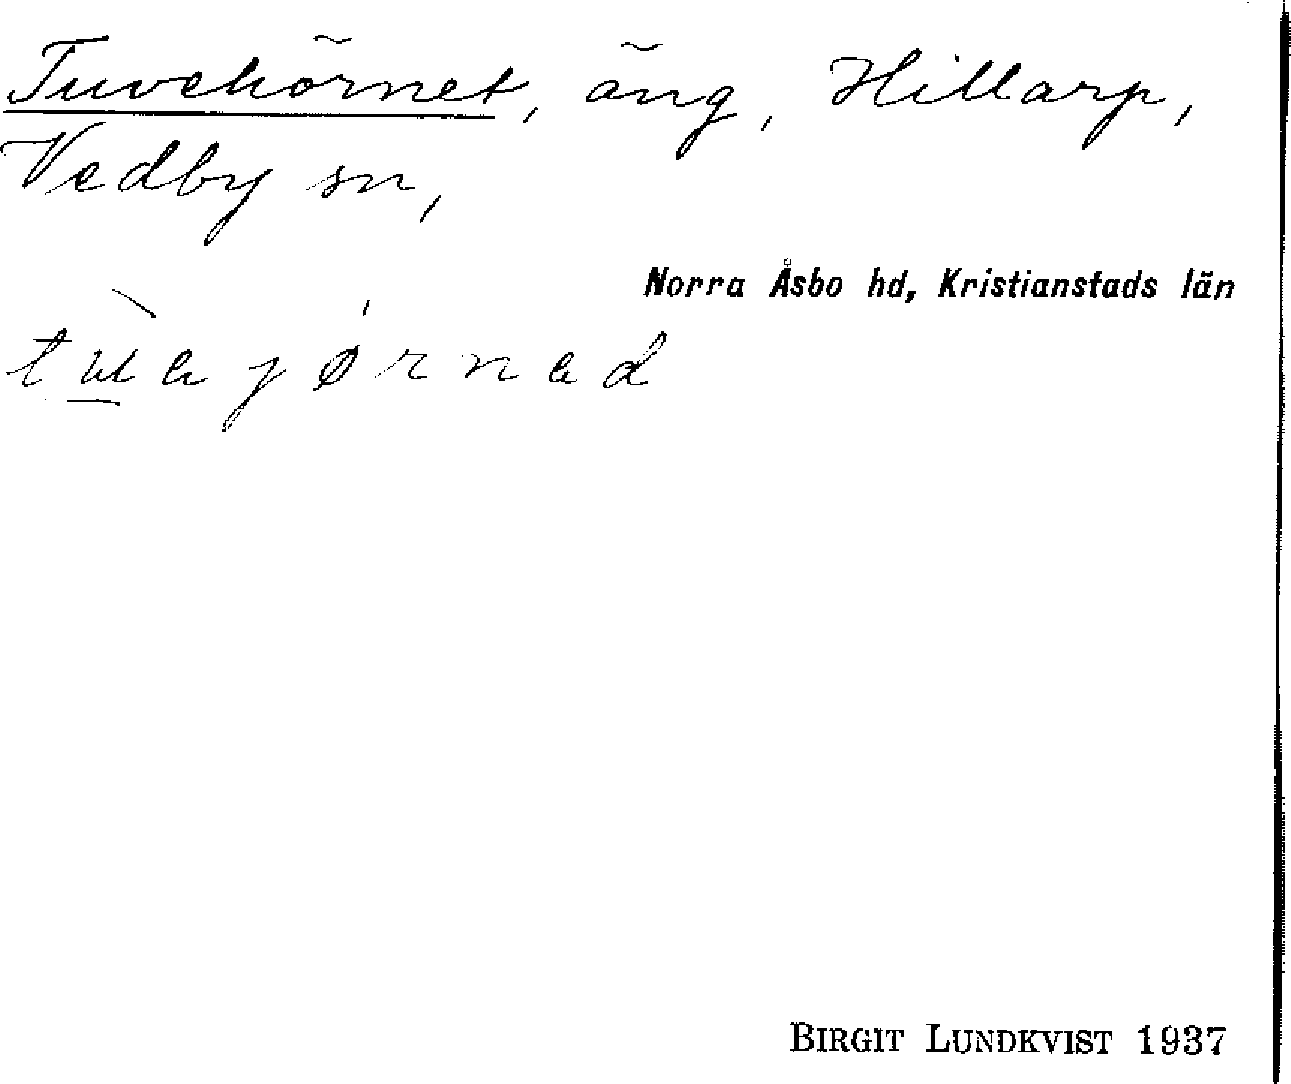 Tuvehörnet, äng, Hillarp,
Vedby sn,
Norra Åsbo hd, Kristianstads län
BIRGIT LUNDKVIST 1937